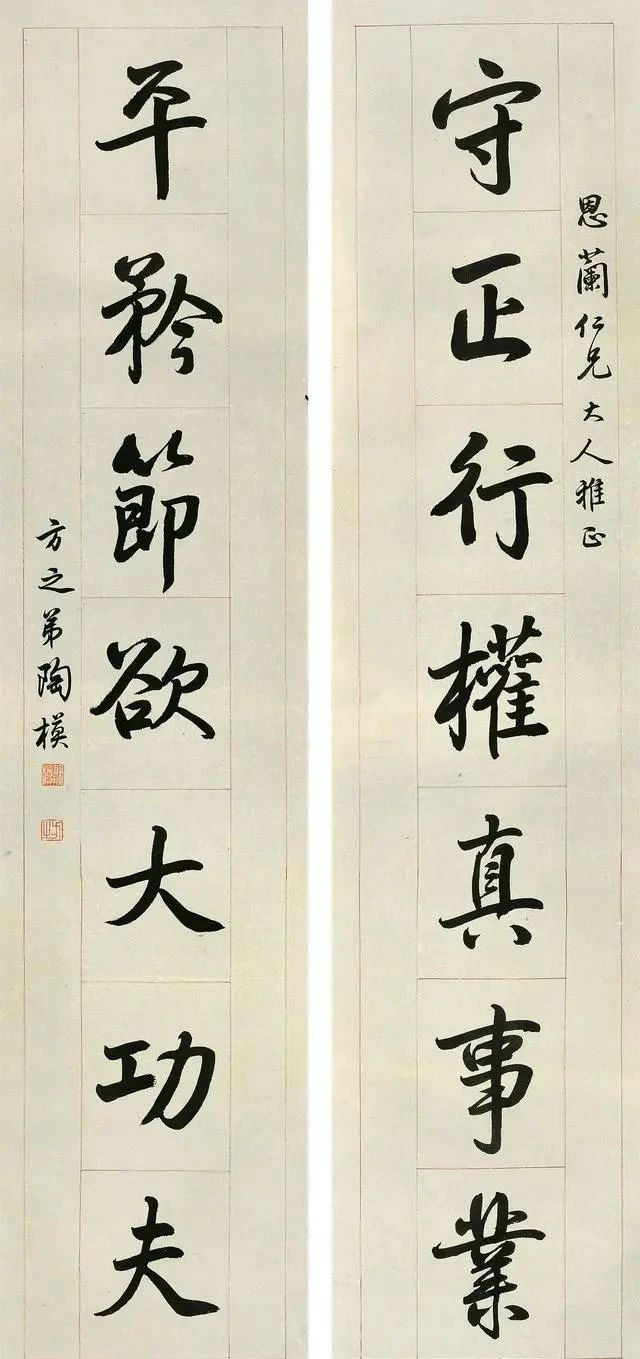 恩蘭仁兄大人雅正
守正行權真事業
平矜節欲大功夫
方之弟陶模